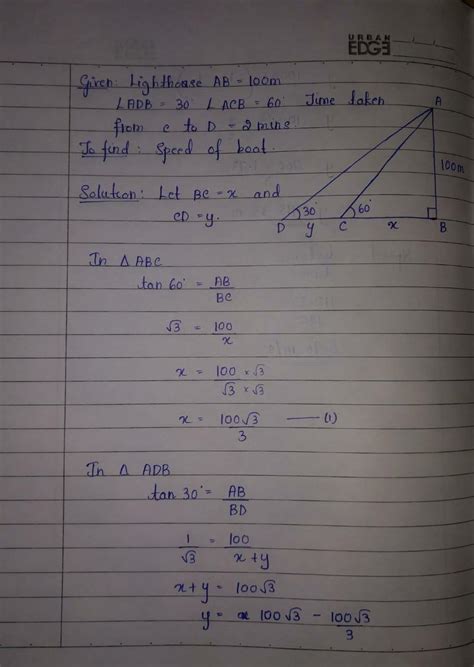 URBAN
EDGE
Given: Lighthouse AB = 100m
∠ADB = 30° ∠ACB = 60° Time taken
from C to D = 2 mins.
To find: Speed of boat.
Solution: Let BC = x and
CD = y.
A
100m
30°
60°
D
y
C
x
B
In Δ ABC
tan 60° = AB/BC
√3 = 100/x
x = 100 × √3 / √3 × √3
x = 100√3/3 —— (1)
In Δ ADB
tan 30° = AB/BD
1/√3 = 100/x+y
x+y = 100√3
y = 100√3 − 100√3/3